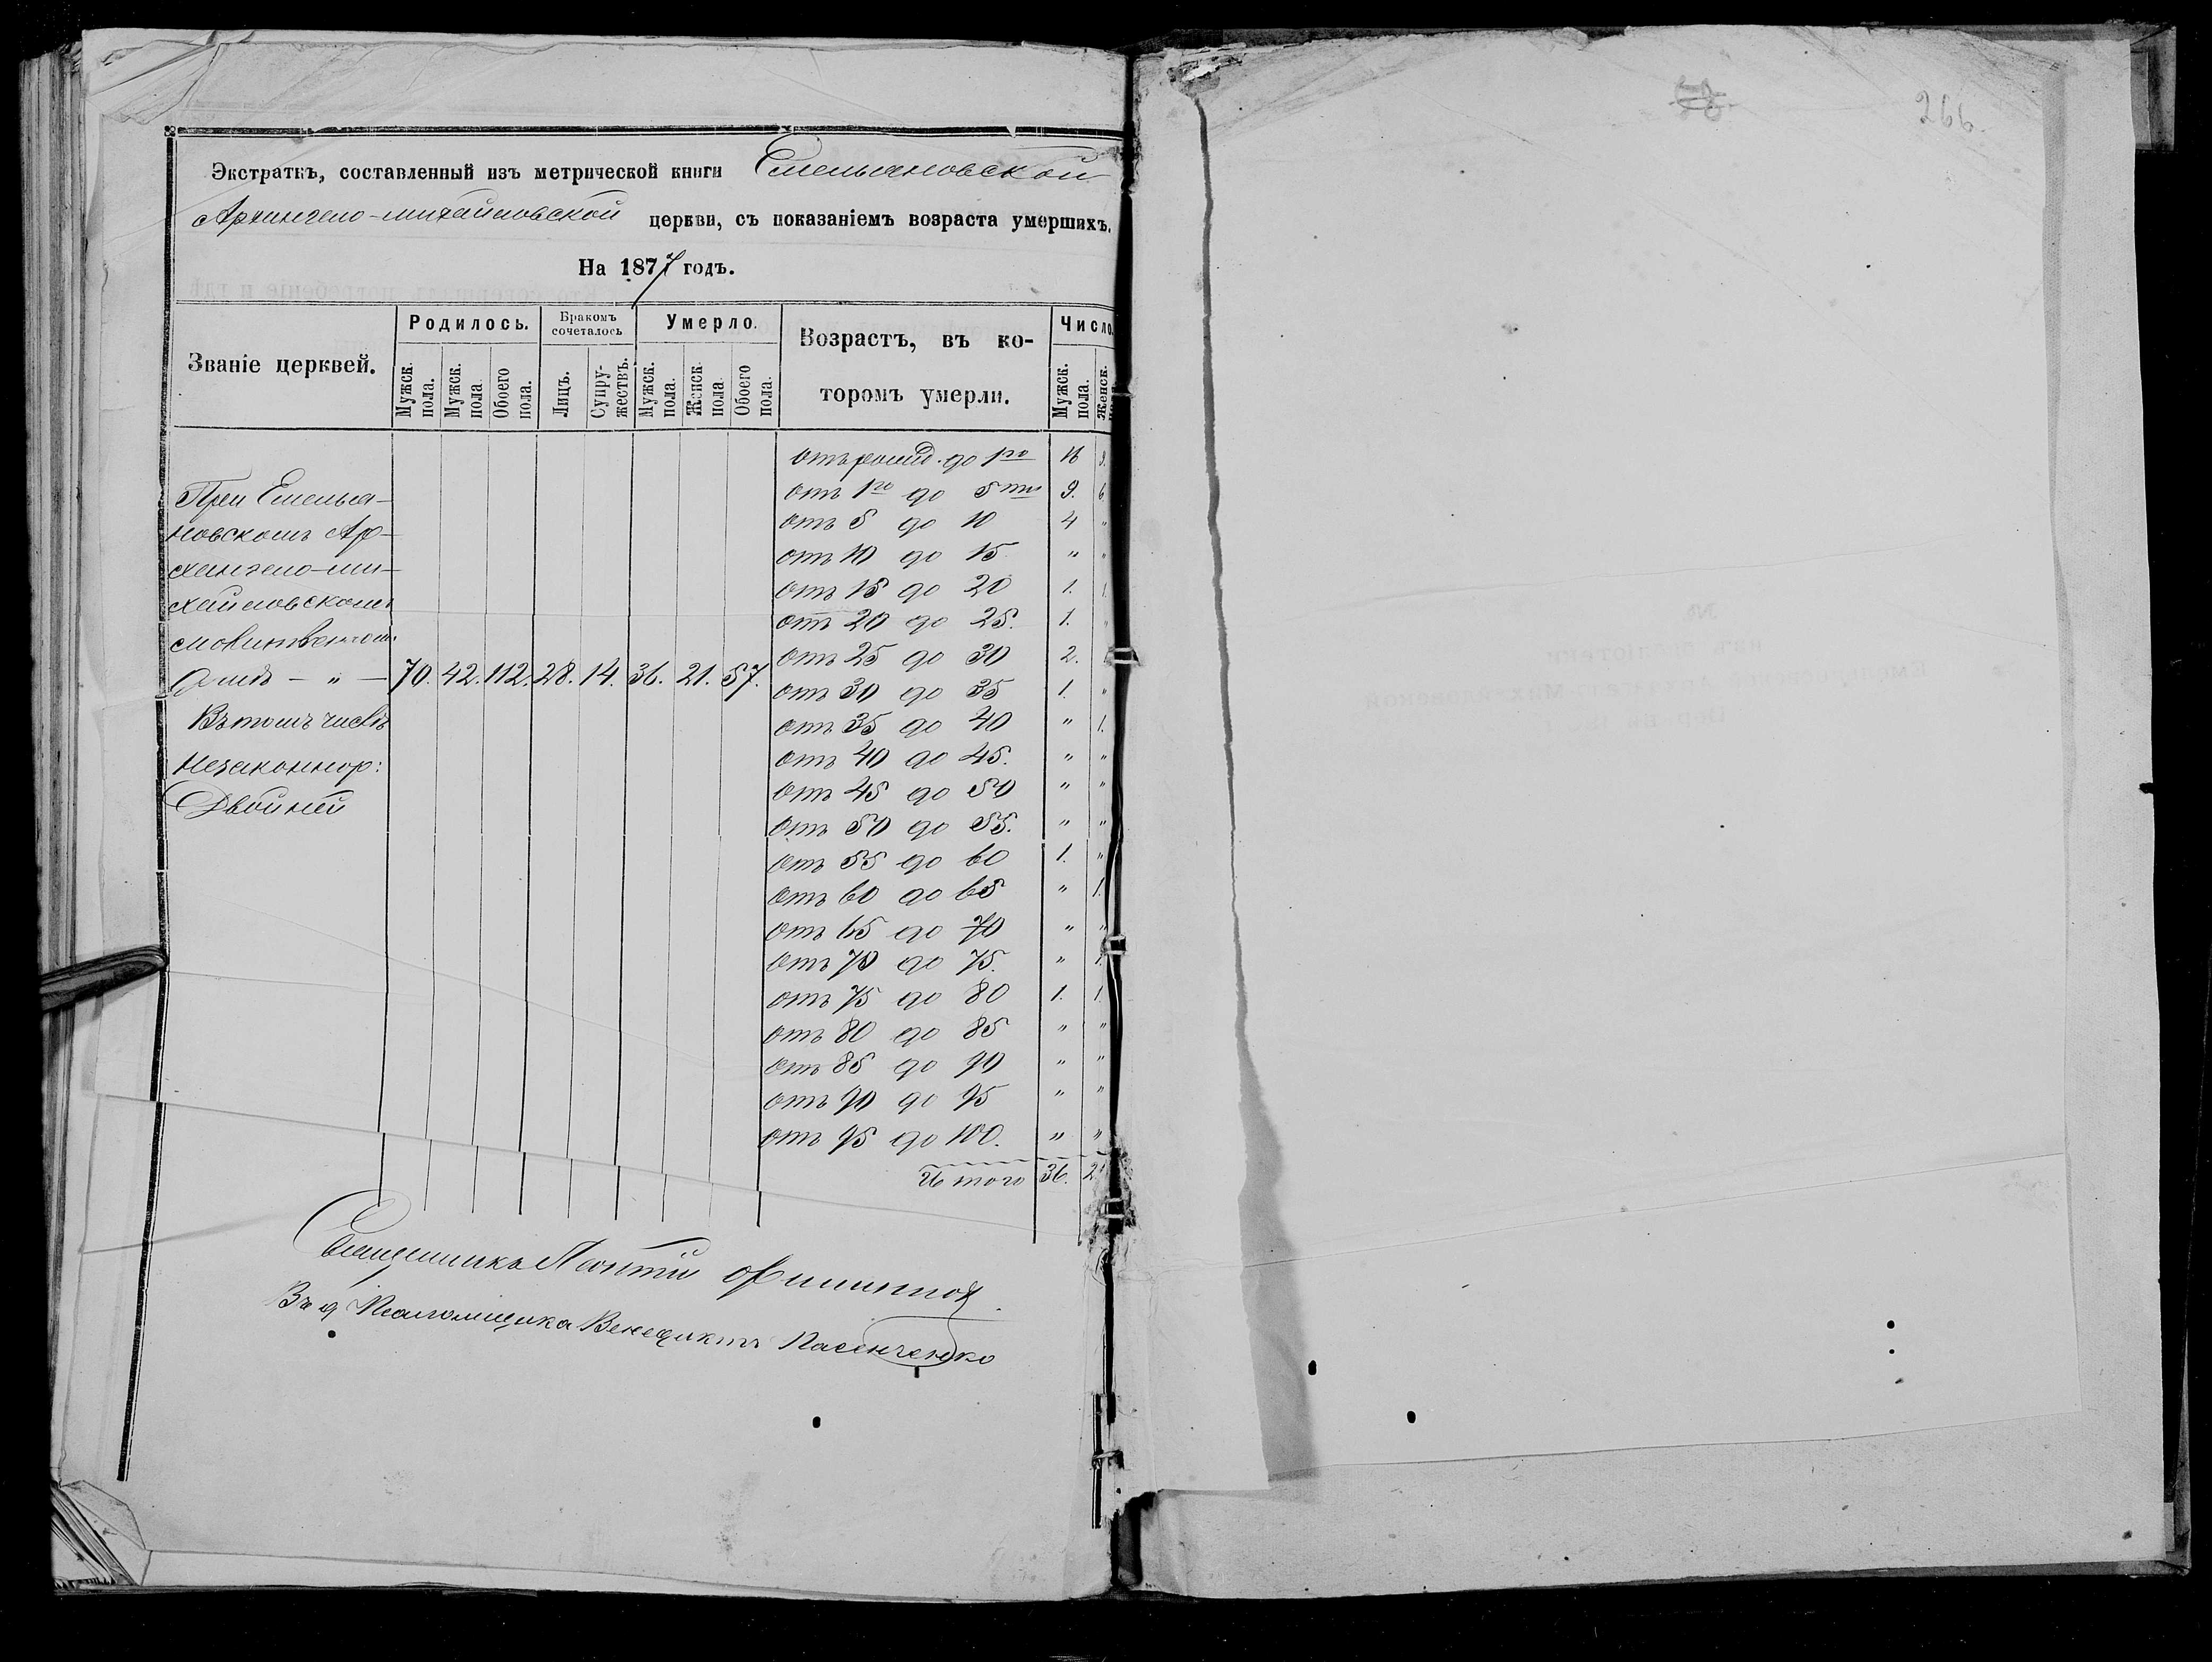 Экстрактъ, составленный изъ метрической книги Емельяновской
Архангело-михайловской церкви, съ показаніемъ возраста умершихъ.
На 1877 годъ.
Званіе церквей.
Родилось.
Бракомъ сочеталось
Умерло.
Возрастъ, въ ко-
торомъ умерли.
Число.
Мужск. пола.
Мужск. пола.
Обоего пола.
Лицъ.
Супру-
жествъ.
Мужск. пола.
Женск. пола.
Обоего пола.
Мужск. пола.
Женск.
отъ рожд. до 1го 16 9.
отъ 1го до 5ти 9. 6.
отъ 5 до 10 4 "
отъ 10 до 15 " "
отъ 15 до 20 1. 1.
отъ 20 до 25. 1. "
отъ 25 до 30 2.
отъ 30 до 35 1. "
отъ 35 до 40 " 1.
отъ 40 до 45. " "
отъ 45 до 50 " "
отъ 50 до 55. " "
отъ 55 до 60 1. "
отъ 60 до 65 " 1.
отъ 65 до 70 " "
отъ 70 до 75. " 1.
отъ 75 до 80 1. 1.
отъ 80 до 85 " "
отъ 85 до 90 " "
отъ 90 до 95 " "
отъ 95 до 100. " "
Итого 36. 21
При Емелья-
новскомъ Ар-
хангело-ми-
хайловскомъ
молитвенном.
домѣ — " — 70. 42. 112. 28. 14. 36. 21. 57.
Въ томъ числѣ
незаконнор:
Двойней
Священникъ
В. д. Псаломщика Венедиктъ Пасенченко
266.